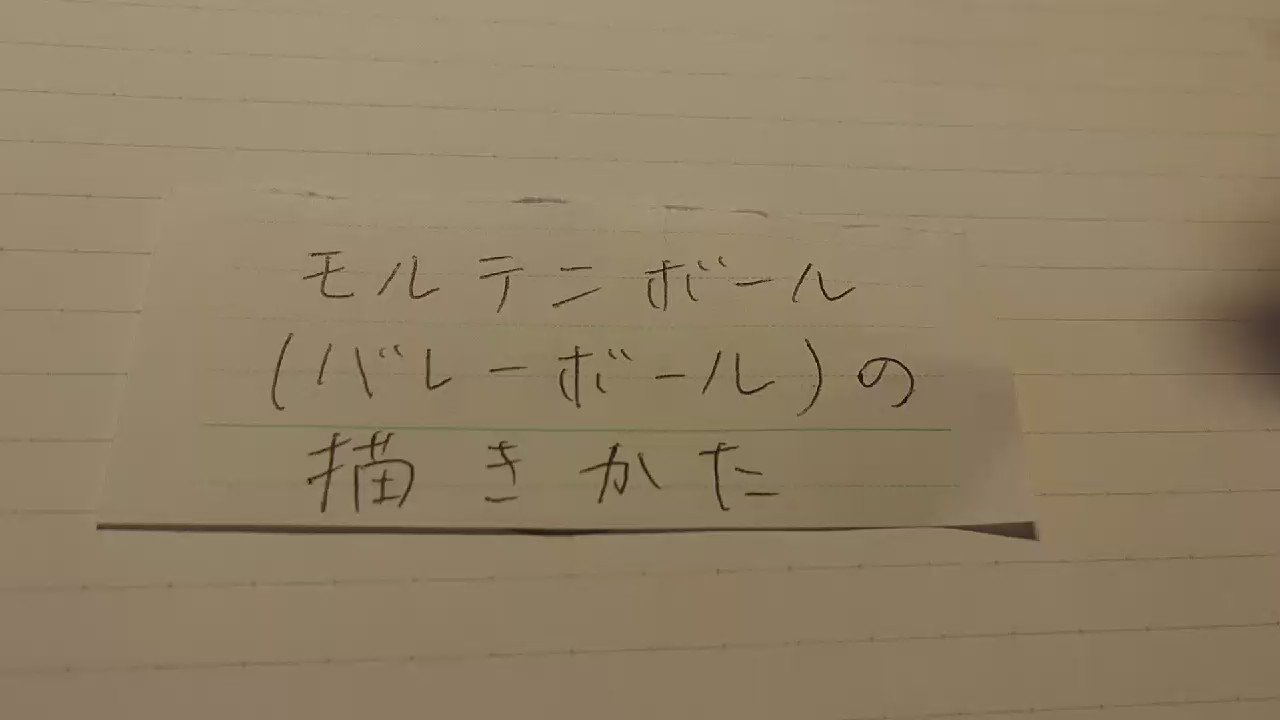 モルテンボール
(バレーボール)の
描きかた